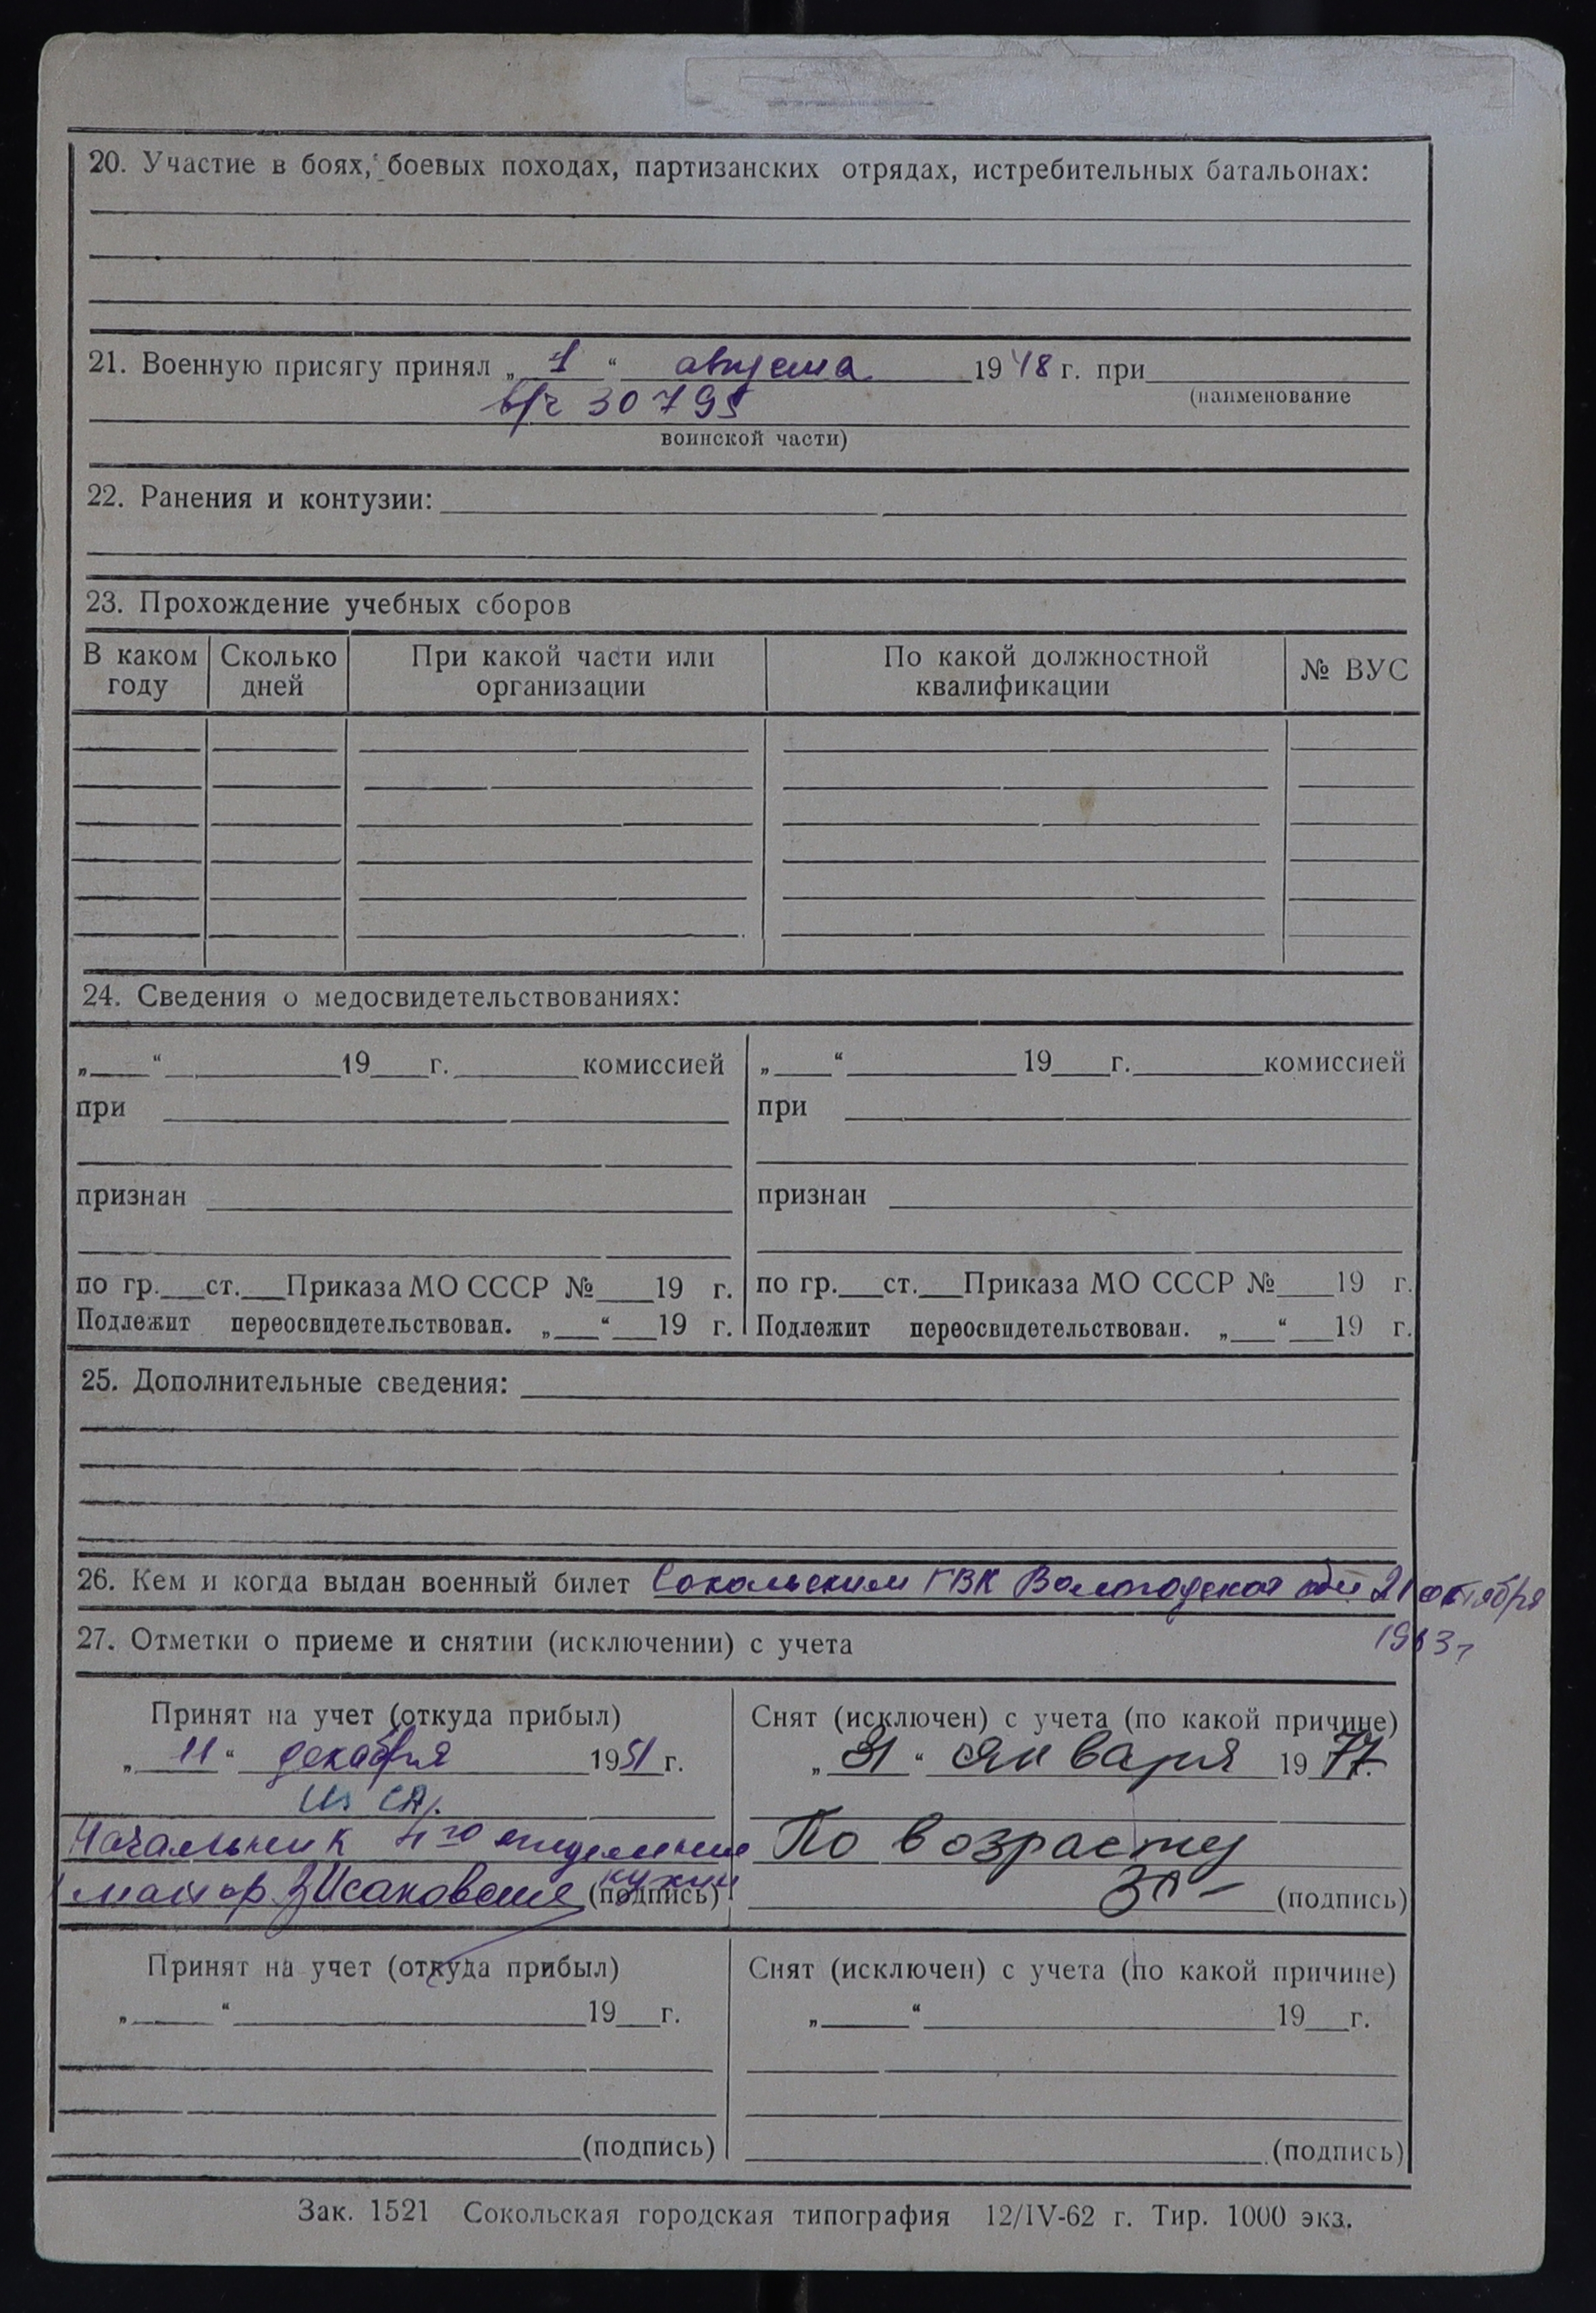 20. Участие в боях, боевых походах, партизанских отрядах, истребительных батальонах:
21. Военную присягу принял „ 1 “ августа 1948 г. при
(наименование
в/ч 30795
воинской части)
22. Ранения и контузии:
23. Прохождение учебных сборов
В каком году | Сколько дней | При какой части или организации | По какой должностной квалификации | № ВУС
24. Сведения о медосвидетельствованиях:
„___“ ______ 19___г. ______ комиссией
при
признан
по гр.___ст.___Приказа МО СССР №___19 г.
Подлежит переосвидетельствован. „___“___19 г.
„___“ ______ 19___г. ______ комиссией
при
признан
по гр.___ст.___Приказа МО СССР №___19 г.
Подлежит переосвидетельствован. „___“___19 г.
25. Дополнительные сведения:
26. Кем и когда выдан военный билет Сокольским ГВК Вологодской обл 21 октября
1963г
27. Отметки о приеме и снятии (исключении) с учета
Принят на учет (откуда прибыл)
„ 11 “ декабря 1951 г.
из СА.
Начальник 4го отделения
майор Исаков (подпись)
Снят (исключен) с учета (по какой причине)
„ 31 “ января 1977 г.
По возрасту
(подпись)
Принят на учет (откуда прибыл)
„___“ ______ 19___г.
(подпись)
Снят (исключен) с учета (по какой причине)
„___“ ______ 19___г.
(подпись)
Зак. 1521 Сокольская городская типография 12/IV-62 г. Тир. 1000 экз.